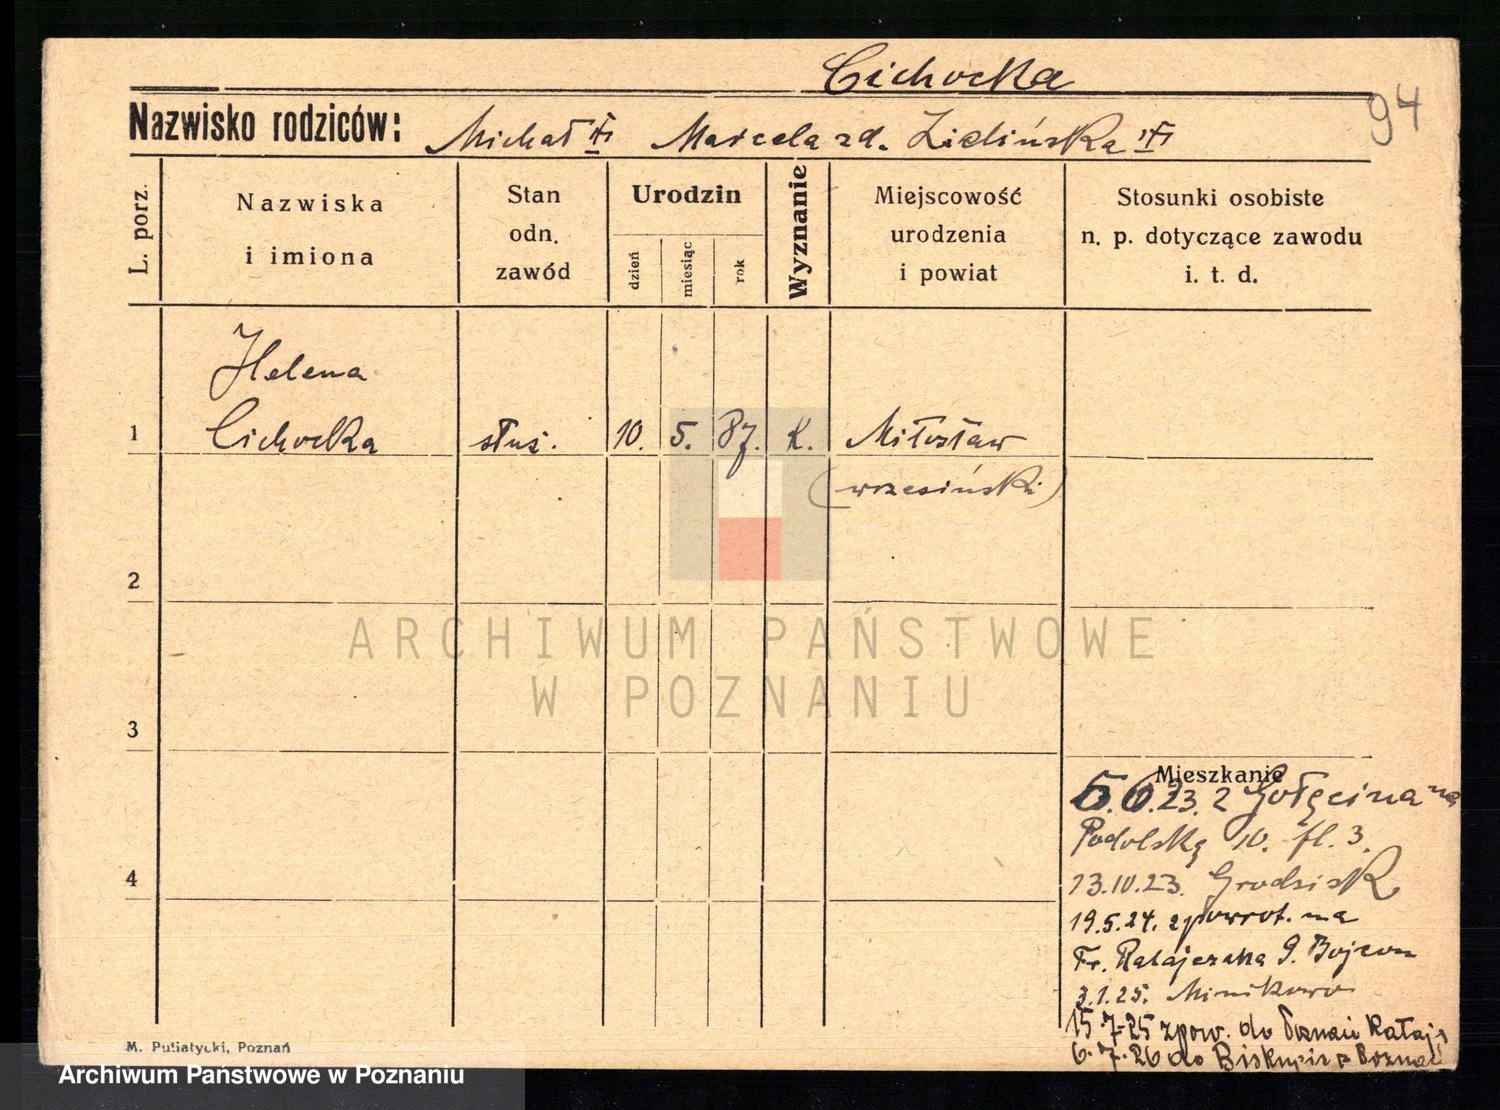 Cichocka
94
Nazwisko rodziców: Michał Marcela zd. Zielińska
L. porz.
Nazwiska i imiona
Stan odn. zawód
Urodzin
dzień
miesiąc
rok
Wyznanie
Miejscowość urodzenia i powiat
Stosunki osobiste n. p. dotyczące zawodu i. t. d.
Helena
1 Cichocka służ. 10. 5. 87. K. Miłosław
(wrzesiński)
2
ARCHIWUM PAŃSTWOWE
W POZNANIU
3
Mieszkanie
5.6.23. z Gołęcina na
Podolską 10. fl. 3.
4
13.10.23. Grodzisk
19.5.24. zpowrot. na
Fr. Ratajczaka 9.
3.1.25. Minikowo
15.7-25 zpow. do Poznań Rataje
6.7.26 do Poznań
M. Putiatycki, Poznań
Archiwum Państwowe w Poznaniu